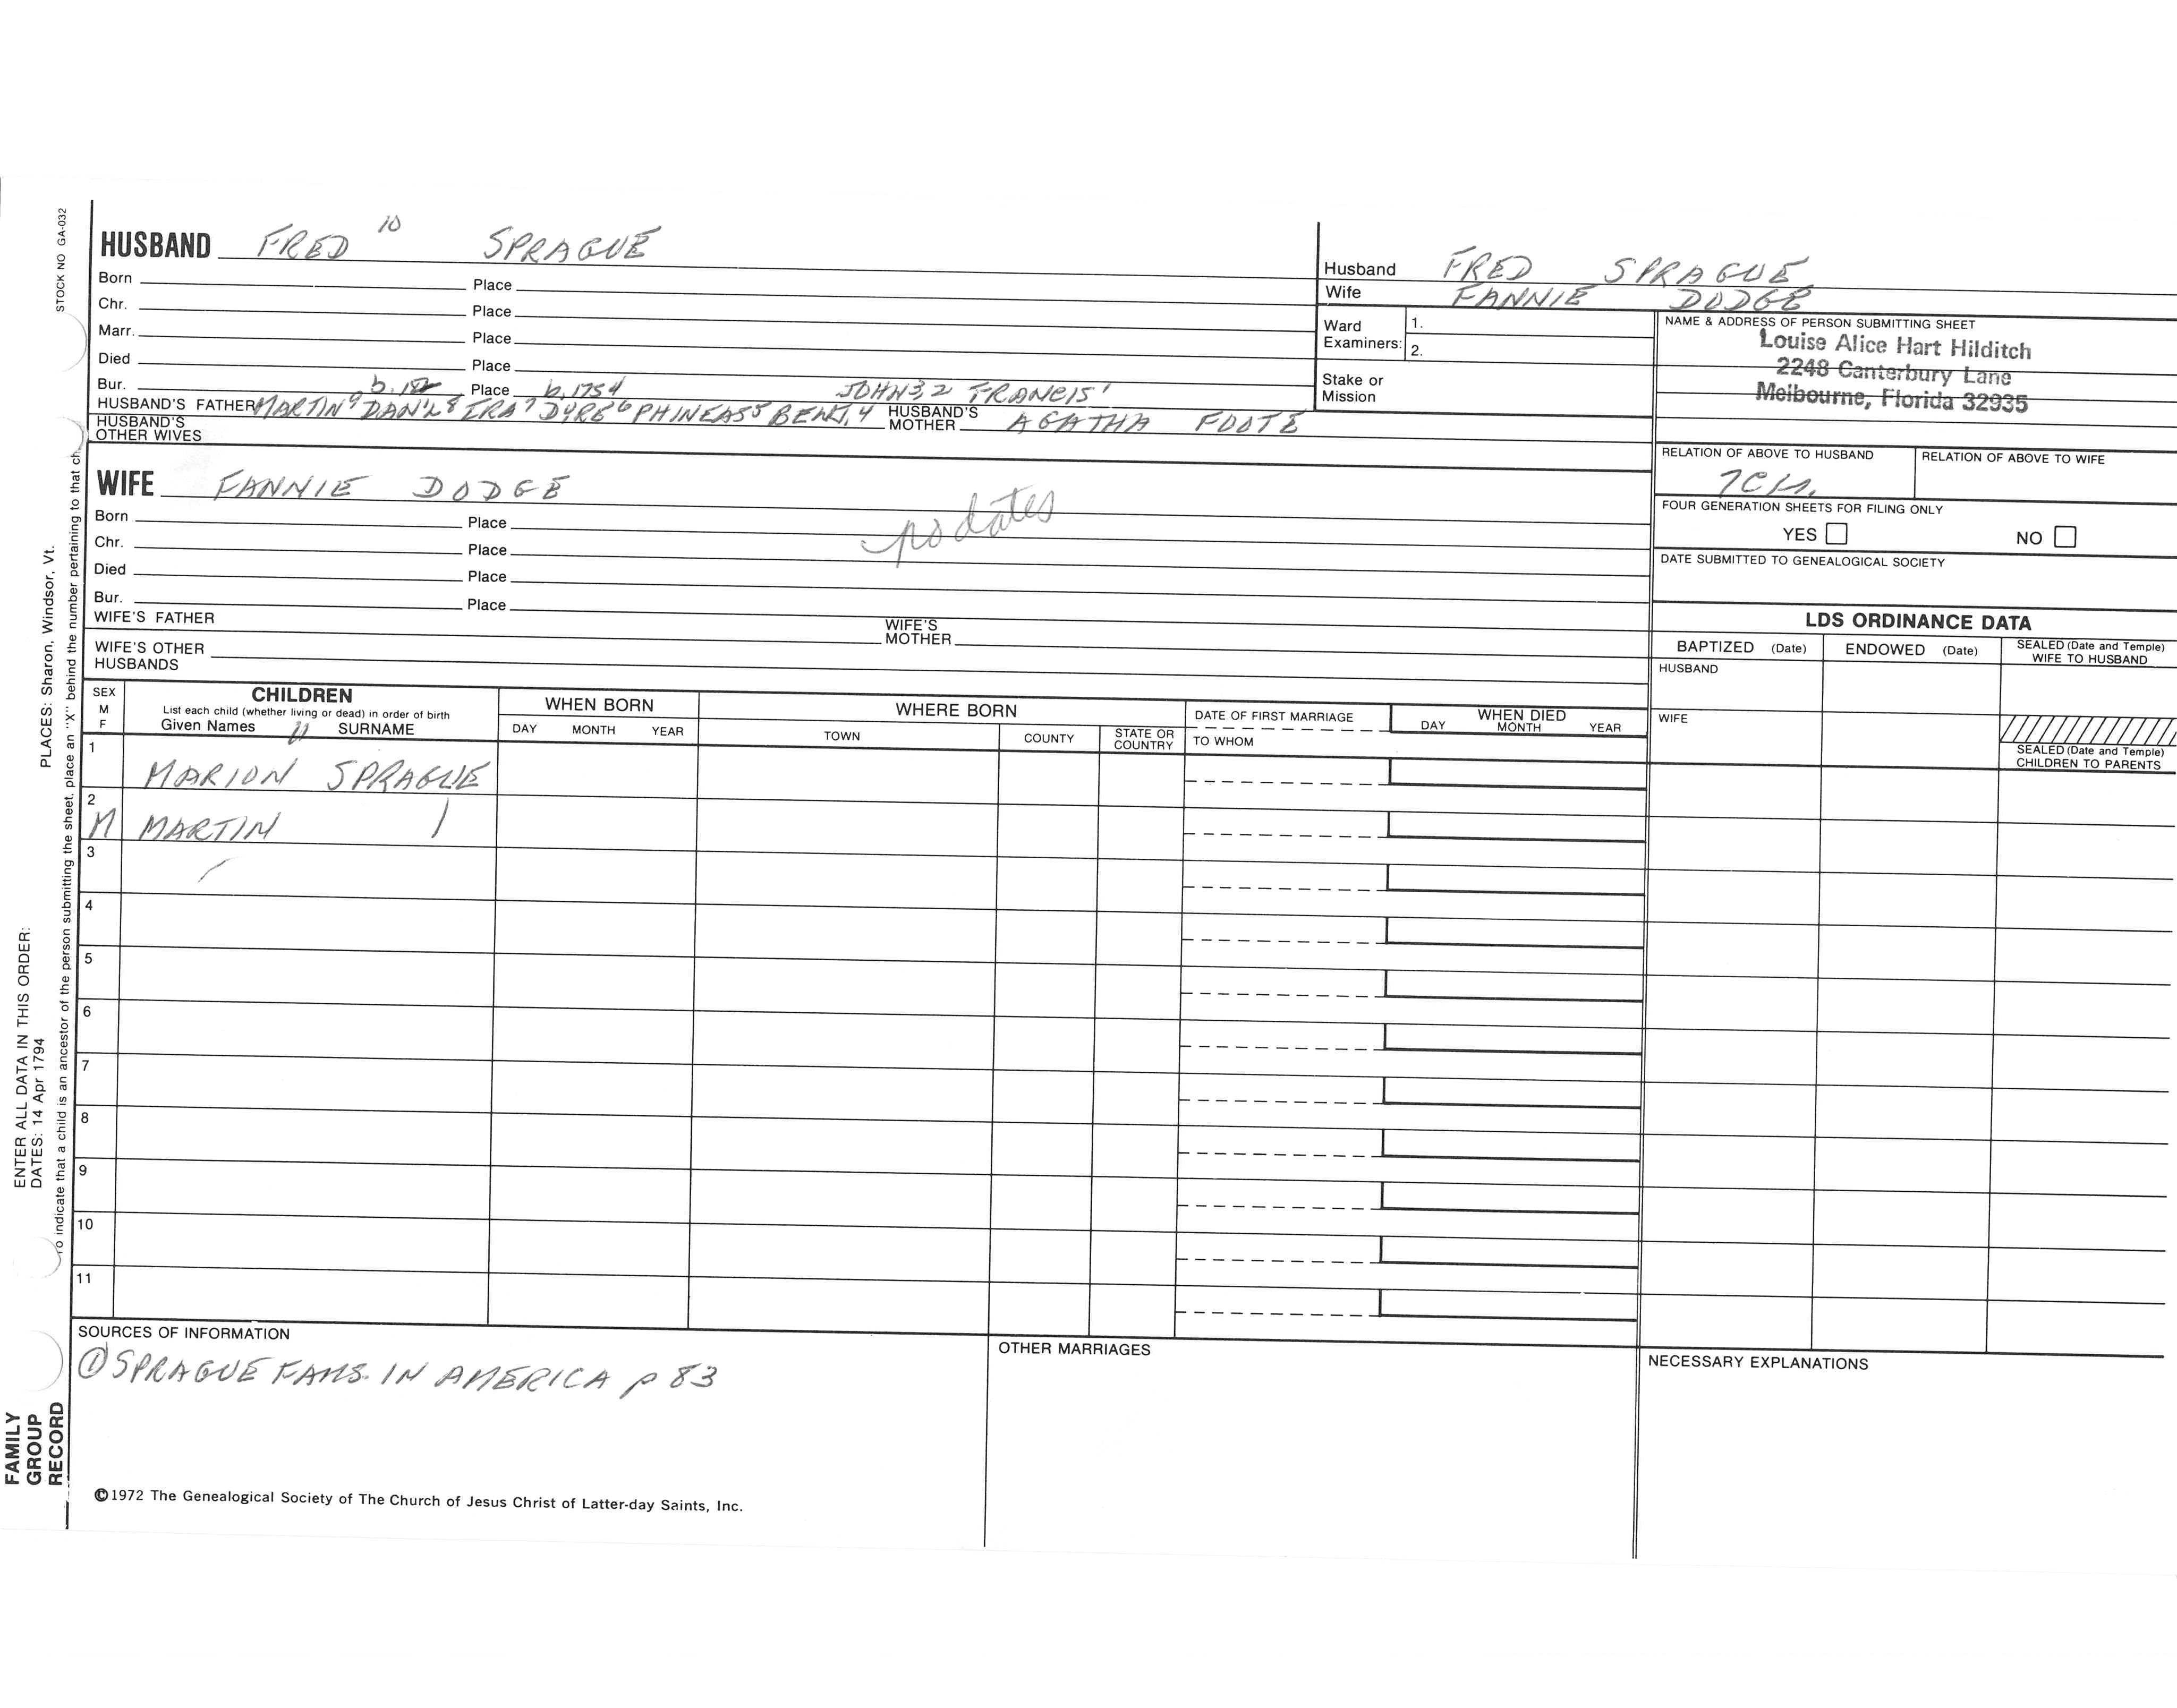 STOCK NO GA-032
PLACES: Sharon, Windsor, Vt.
ENTER ALL DATA IN THIS ORDER:
DATES: 14 Apr 1794
To indicate that a child is an ancestor of the person submitting the sheet, place an "X" behind the number pertaining to that ch
FAMILY
GROUP
RECORD
HUSBAND FRED 10 SPRAGUE
Born Place
Chr. Place
Marr. Place
Died Place
Bur. Place b.1754 JOHN3,2 FRANCIS1
HUSBAND'S FATHER MARTIN9 DAN'L8 IRA7 DYRE6 PHINEAS5 BENJ,4 HUSBAND'S MOTHER AGATHA FOOTE
HUSBAND'S
OTHER WIVES
WIFE FANNIE DODGE
no dates
Born Place
Chr. Place
Died Place
Bur. Place
WIFE'S FATHER WIFE'S MOTHER
WIFE'S OTHER
HUSBANDS
Husband FRED SPRAGUE
Wife FANNIE DODGE
Ward
Examiners:
1.
2.
Stake or
Mission
NAME & ADDRESS OF PERSON SUBMITTING SHEET
Louise Alice Hart Hilditch
2248 Canterbury Lane
Melbourne, Florida 32935
RELATION OF ABOVE TO HUSBAND RELATION OF ABOVE TO WIFE
FOUR GENERATION SHEETS FOR FILING ONLY
YES NO
DATE SUBMITTED TO GENEALOGICAL SOCIETY
LDS ORDINANCE DATA
BAPTIZED (Date) ENDOWED (Date) SEALED (Date and Temple)
WIFE TO HUSBAND
HUSBAND
WIFE
SEALED (Date and Temple)
CHILDREN TO PARENTS
SEX
M
F
CHILDREN
List each child (whether living or dead) in order of birth
Given Names 11 SURNAME
WHEN BORN
DAY MONTH YEAR
WHERE BORN
TOWN COUNTY STATE OR COUNTRY
DATE OF FIRST MARRIAGE
TO WHOM
WHEN DIED
DAY MONTH YEAR
1 MARION SPRAGUE
2 M MARTIN
3
4
5
6
7
8
9
10
11
SOURCES OF INFORMATION
① SPRAGUE FAMS. IN AMERICA p 83
OTHER MARRIAGES
NECESSARY EXPLANATIONS
©1972 The Genealogical Society of The Church of Jesus Christ of Latter-day Saints, Inc.